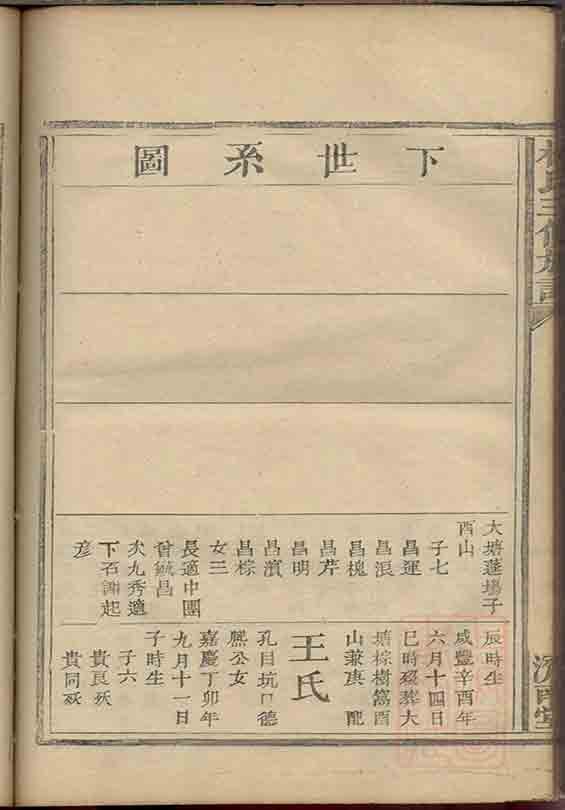 下世系圖
大塘蓮塲子
酉山
子七
昌運
昌浪
昌槐
昌芹
昌明
昌濱
昌棕
女三
長適中團
曾毓昌
次九秀適
下石謝起
彦
辰時生
咸豐辛酉年
六月十四日
巳時歿葬大
塘棕樹窩酉
山兼庚 配
王氏
孔目坑口德
熙公女
嘉慶丁卯年
九月十一日
子時生
子六
貴良殀
貴同殀
氏三修族譜
堂